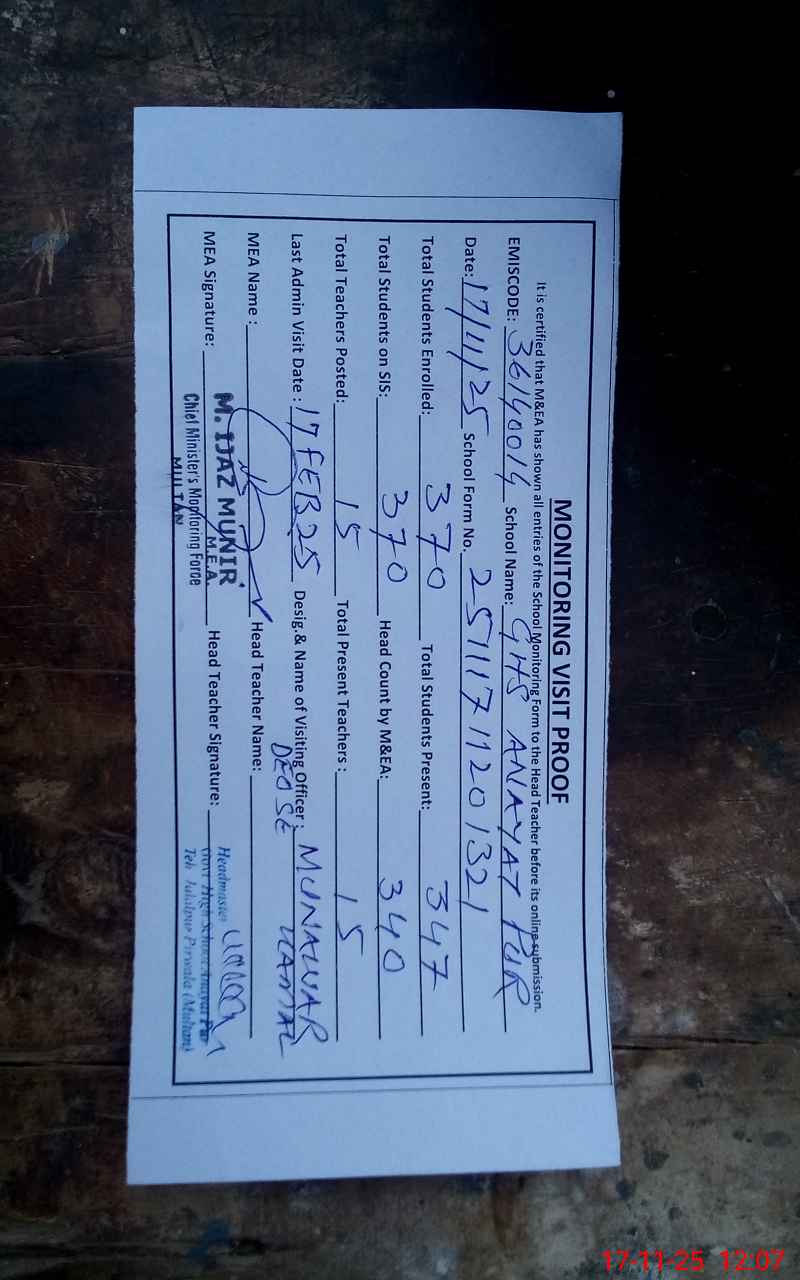 MONITORING VISIT PROOF
It is certified that M&EA has shown all entries of the School Monitoring Form to the Head Teacher before its online submission.
EMISCODE: 36140014 School Name: GHS ANAYAT PUR
Date: 17/11/25 School Form No. 25111711201321
Total Students Enrolled: 370 Total Students Present: 347
Total Students on SIS: 370 Head Count by M&EA: 340
Total Teachers Posted: 15 Total Present Teachers : 15
Last Admin Visit Date : 17 FEB 25 Desig.& Name of Visiting Officer : MUNAWAR
DEO SE KAMAL
MEA Name : Head Teacher Name:
MEA Signature: Head Teacher Signature:
M. IJAZ MUNIR
M.E.A.
Chief Minister's Monitoring Force
MULTAN
Headmaster
Govt High School Anayat Pur
Teh Jalalpur Pirwala (Multan)
17-11-25 12:07